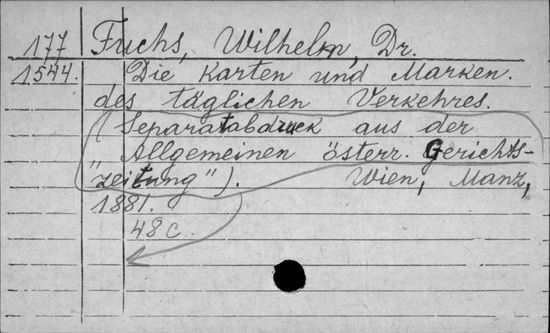 177 Fuchs, Wilhelm, Dr.
1544. Die Karten und Marken.
des täglichen Verkehres.
(Separatabdruck aus der
„Allgemeinen österr. Gerichts-
zeitung"). Wien, Manz,
1881.
48 c.